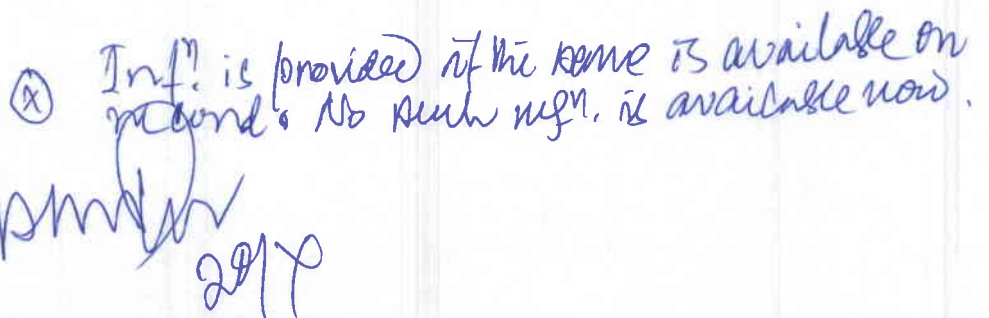 (x) Infⁿ. is provided if the same is available on
record. No such infⁿ. is available now.